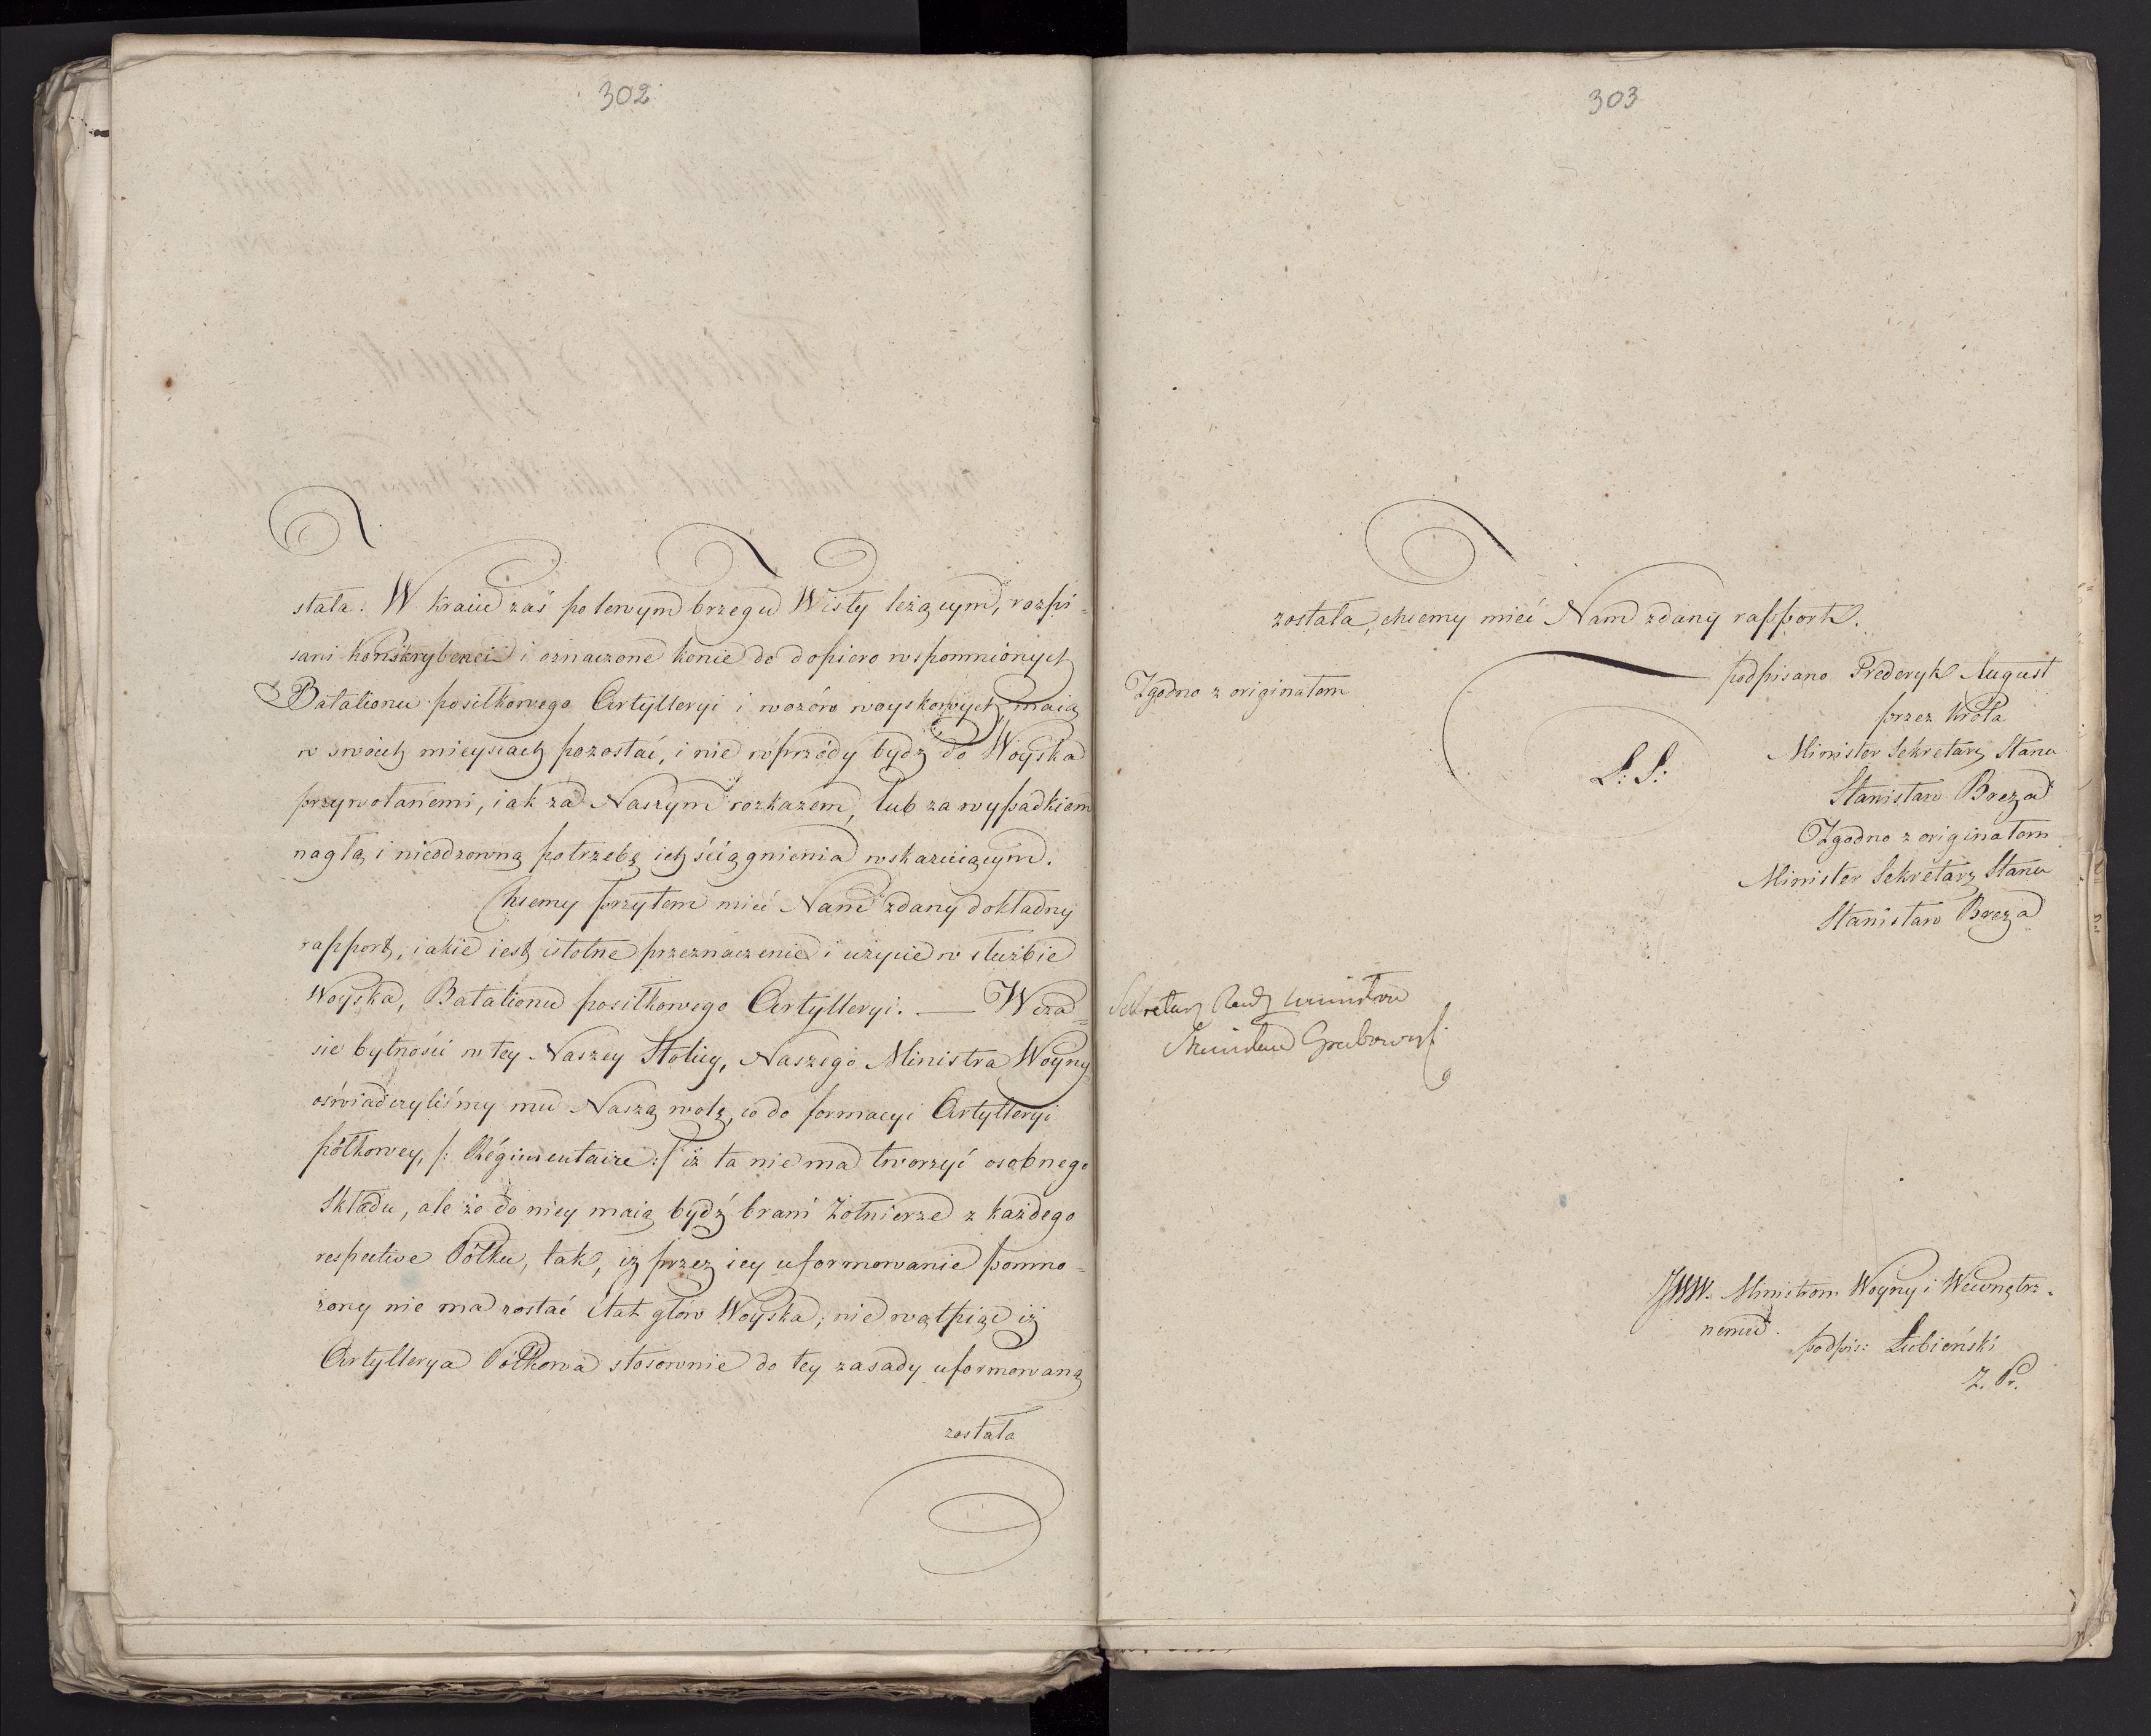 302
stała. W kraiu zaś po lewym brzegu Wisły leżącym, rozpi-
sani konskrybenci i oznaczone konie do dopiero wspomnionych
Batalionu posiłkowego Artylleryi i wozów woyskowych, maią
w swoich mieyscach pozostać, i nie wprzódy bydź do Woyska
przywołanemi, iak za Naszym rozkazem, lub za wypadkiem
nagłą i nieodzowną potrzebę ich ściągnienia wskazuiącym.
Chcemy przytem mieć Nam zdany dokładny
rapport, iakie iest istotne przeznaczenie i użycie w służbie
Woyska, Batalionu posiłkowego Artylleryi. — W cza-
sie bytności w tey Naszey Stolicy, Naszego Ministra Woyny
oświadczyliśmy mu Naszą wolę, co do formacyi Artylleryi
półkowey, /: Régimentaire :/ iż ta nie ma tworzyć osobnego
Składu, ale że do niey maią bydź brani Żołnierze z każdego
respective Półku, tak, iż przez iey uformowanie pomno-
żony nie ma zostać État głów Woyska; nie wątpiąc iż
Artyllerya Półkowa stosownie do tey zasady uformowaną
została
303
została, chcemy mieć Nam zdany rapport.
podpisano Frederyk August
przez Króla
Minister Sekretarz Stanu
Stanisław Breza
L: S:
Zgodno z originałem
Minister Sekretarz Stanu
Stanisław Breza
Zgodno z originałem
Sekretarz Rady Ministrów
Stanisław Grabowski
JWW. Ministrom Woyny i Wewnętrz-
nemu.
podpis: Łubieński
Z. Pr.